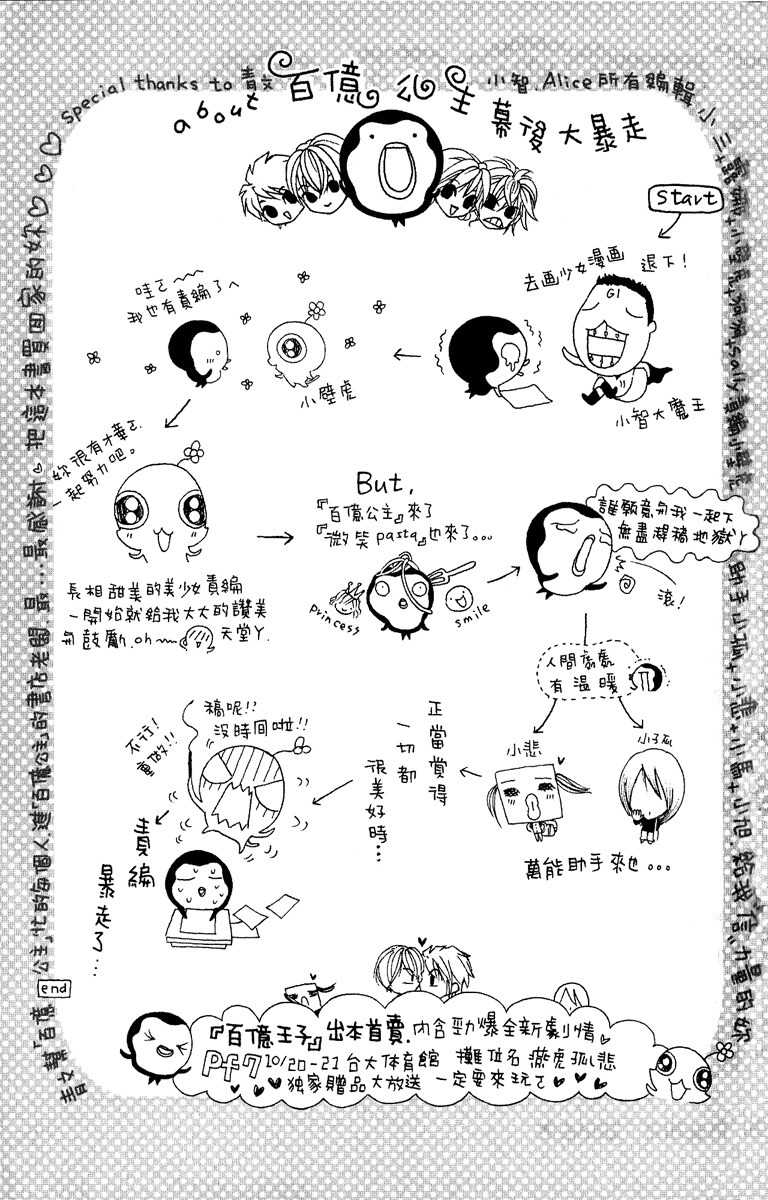 about 百億公主
幕後大暴走
start
退下!
去画少女漫画
G1
小智大魔王
哇ㄛ~~
我也有責編了へ
小壁虎
妳很有才華ㄛ.
一起努力吧。
長相甜美的美少女責編
一開始就給我大大的讚美
和鼓勵.oh~ 天堂ㄚ.
But,
『百億公主』來了
『微笑pasta』也來了...
princess
smile
誰願意和我一起下
無盡趕稿地獄ㄚ
滾!
人間處處
有溫暖
小悲
小狐
萬能助手來也...
正當覺得
一切都
很美好時...
稿呢!!
沒時间啦!!
不行!
重做!!
責編
暴走了...
『百億王子』出本首賣.內含勁爆全新劇情。
Pf7 10/20-21 台大体育館 攤位名 燕虎狐悲
独家贈品大放送 一定要來玩ㄛ
special thanks to 青文
小智.Alice所有編輯.小三+
sally責編小壁虎
助手小狐+小悲+小馬+小旭.給我信心力量的妳
青文幫「百億公主」忙的每個人進「百億公主」的書店老闆.最...最感謝♡把這本書買回家的妳♡
end